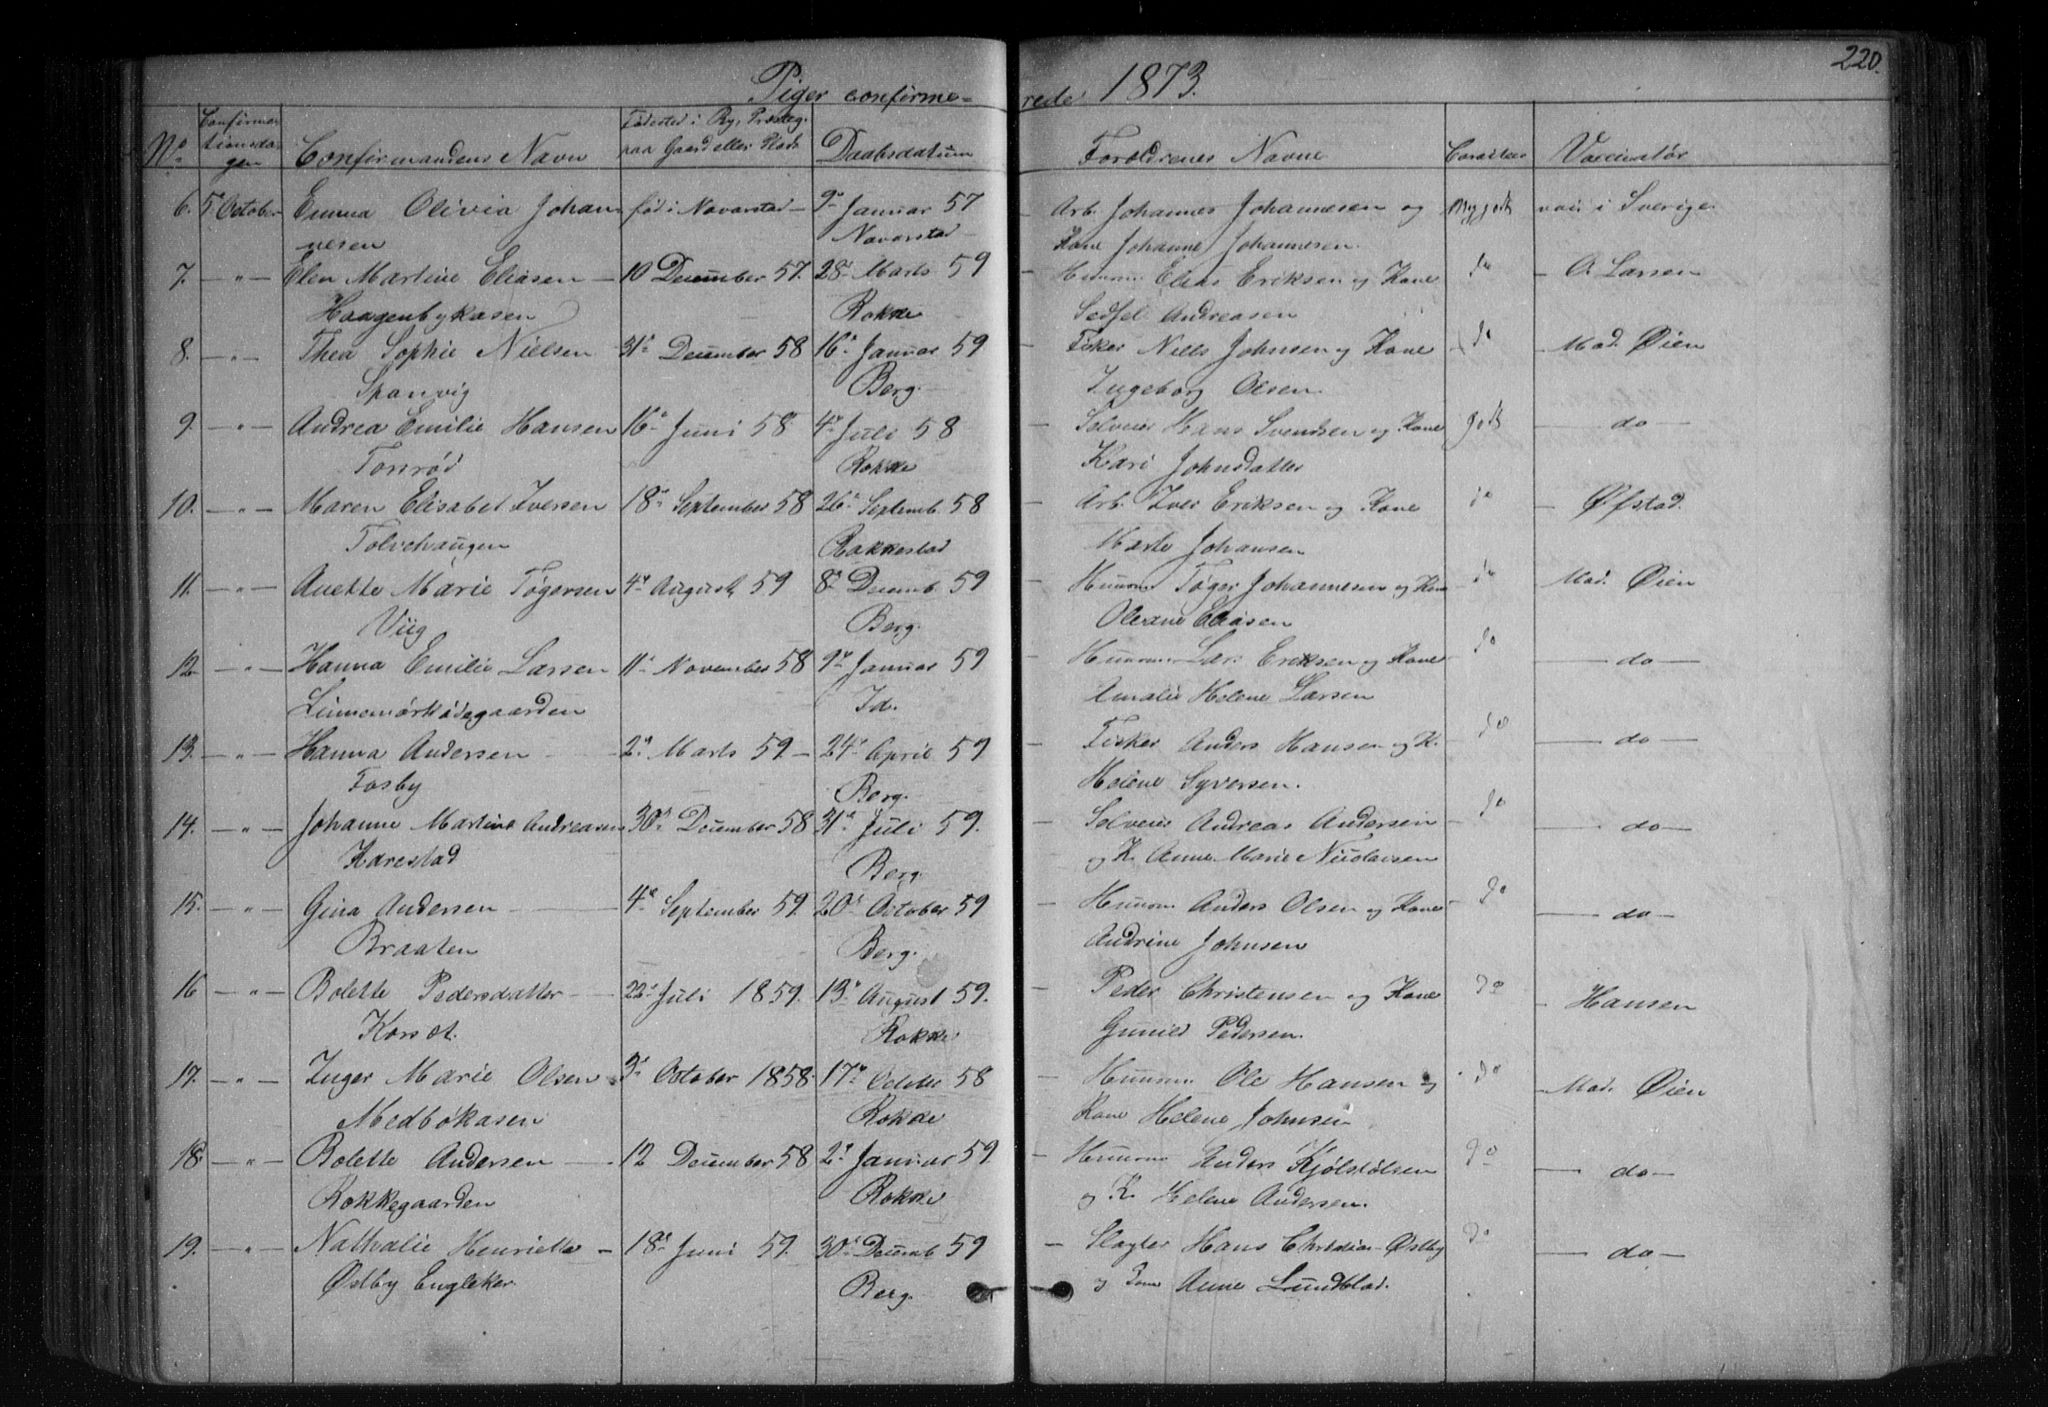 220.
Piger confirme= rede 1873.
No. Confirmationsdagen Confirmandens Navn Fødested i By, Præsteg. paa Gaard eller Plads Daabsdatum Forældrenes Navne Caracteer Vaccinatør
6. 5 October Emma Olivia Johan fød i Navarstad — 9de Januar 57 — Arb. Johannes Johannesen og Meg. godt vac. i Sverige
nesen Navarstad Kone Johanne Johannesen.
7. — " — Elen Martine Eliasen — 10 December 57. 28de Marts 59 — Huusm. Elias Eriksen og Kone do — O. Larsen
Haagenbykasen Rokke Sedsel Andreasen
8. — " — Thea Sophie Nielsen 31te December 58 16de Januar 59 — Fisker Niels Johnsen og Kone do — Mad. Øien
Sponvig Berg. Ingeborg Olsen.
9. — " — Andrea Emilie Hansen 16de Juni 58 4de Juli 58 — Selveier Hans Svendsen og Kone godt — do —
Tonrød Rokke Kari Johnsdatter
10. — " — Maren Elisabet Iversen 18de September 58 26de Septemb. 58 — Arb. Iver Eriksen og Kone do — Øfstad.
Tolvehaugen Rakkestad Marte Johansen
11. — " — Anette Marie Tøgersen 4de August 59 8de Decemb. 59 — Huusm. Tøger Johannesen og Kone do Mad. Øien
Viig Berg. Oleane Eliasen
12 — " — Hanna Emilie Larsen 11te November 58 9de Januar 59 — Huusm. Lars Eriksen og Kone do — do —
Linnemørkødegaarden Id. Amalie Helene Larsen
13. — " — Hanna Andersen 2den Marts 59 — 24de April 59 — Fisker Anders Hansen og K. do — do —
Fosby Berg. Helene Syversen.
14. — " — Johanne Martine Andreasen 30te December 58 31te Juli 59. — Selveier Andreas Andersen do — do —
Karestad Berg og K. Anne Marie Nicolaisen
15. — " — Gina Andersen — 4de September 59. 20de October 59 — Huusm. Anders Olsen og Kone do — do —
Braaten Berg. Andrine Johnsen
16 — " — Bolette Pedersdatter — 22de Juli 1859. 13de August 59. — Peder Christensen og Kone do — Hansen
Korset. Rokke Gunild Pedersen.
17. — " — Inger Marie Olsen 3de October 1858. 17de October 58 — Huusm. Ole Hansen og do — Mad. Øien
Medbøkasen Rokke Kone Helene Johnsen
18. — " — Bolette Andersen — 12 December 58 2den Januar 59. — Huusm. Anders Kjølstølsen do — do —
Rokkegaarden Rokke og K. Helene Andersen.
19. — " — Nathalie Henriette — 18de Juni 59. 30te Decemb. 59 — Slagter Hans Christian Østby do — do —
Østby Engleker Berg. og Kone Anne Lundblad.